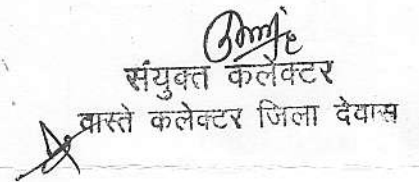 संयुक्त कलेक्टर
वास्ते कलेक्टर जिला देवास